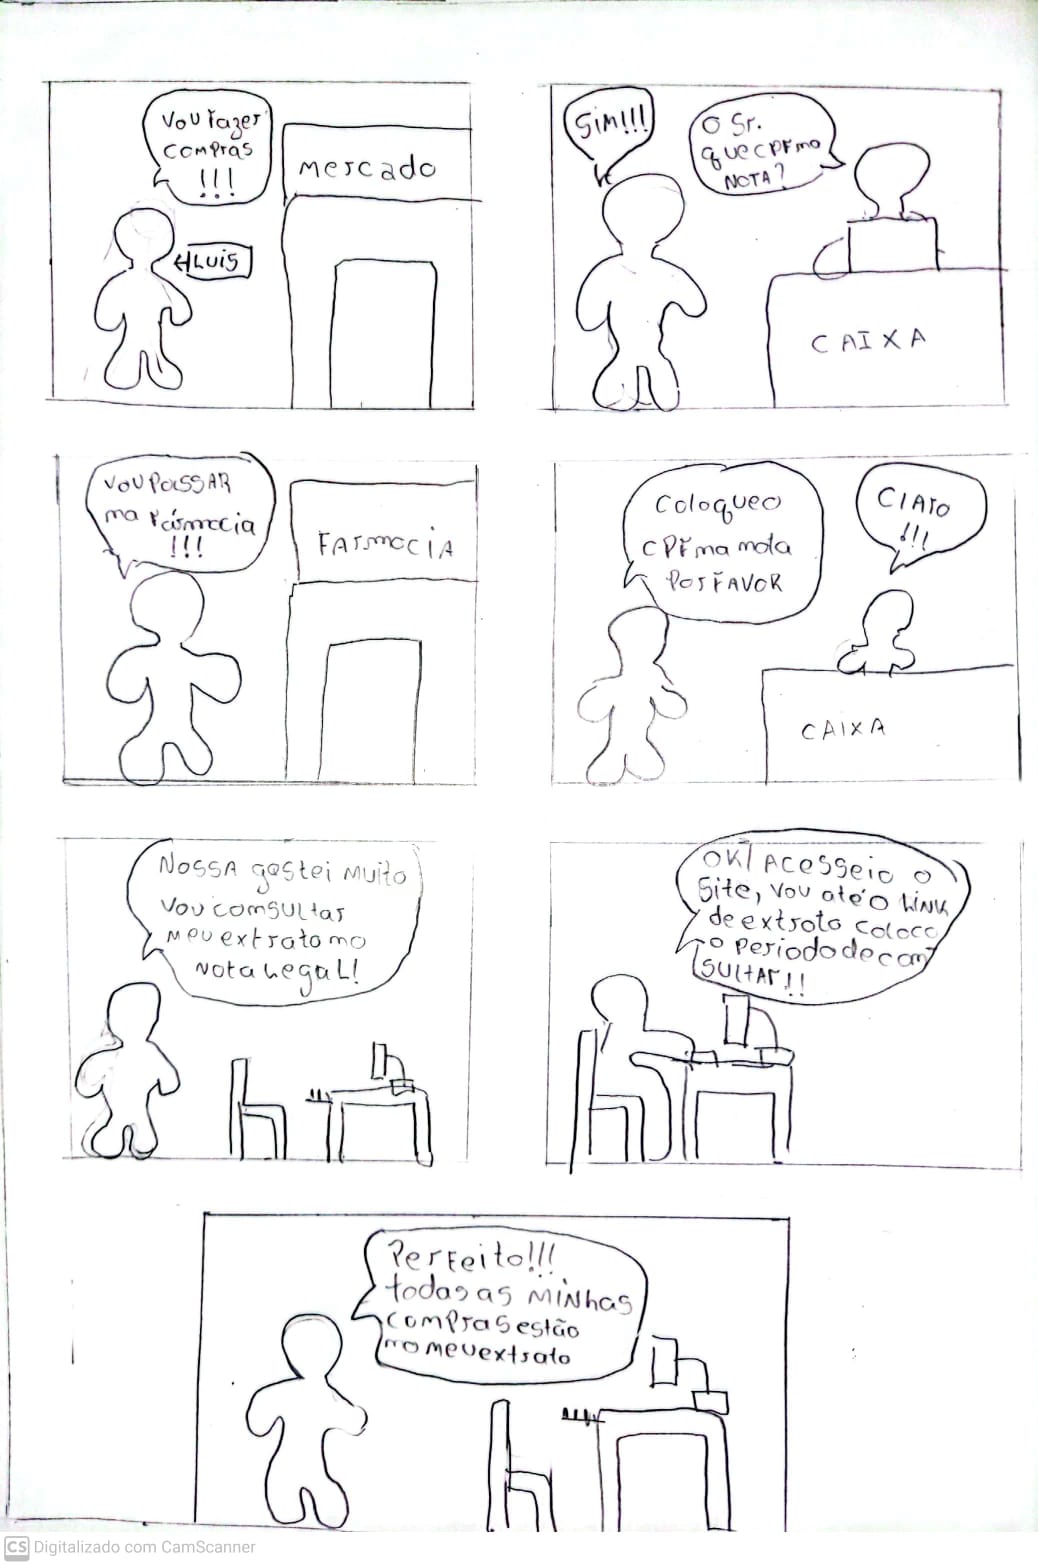 Vou fazer
compras
!!!
mercado
LUIS
SIM!!!
O Sr.
que CPF na
NOTA?
CAIXA
Vou PASSAR
na Fármacia
!!!
FARmaciA
Coloque o
CPF na nota
POR FAVOR
ClAro
!!!
CAIXA
NOSSA gostei Muito
Vou consultar
Meu extrato no
Nota LegaL!
OK! Acessei o
Site, Vou até o Link
de extrato coloco
o periodo de con
SULTAR!!
Perfeito!!!
todas as Minhas
compras estão
no meu extrato
CS Digitalizado com CamScanner